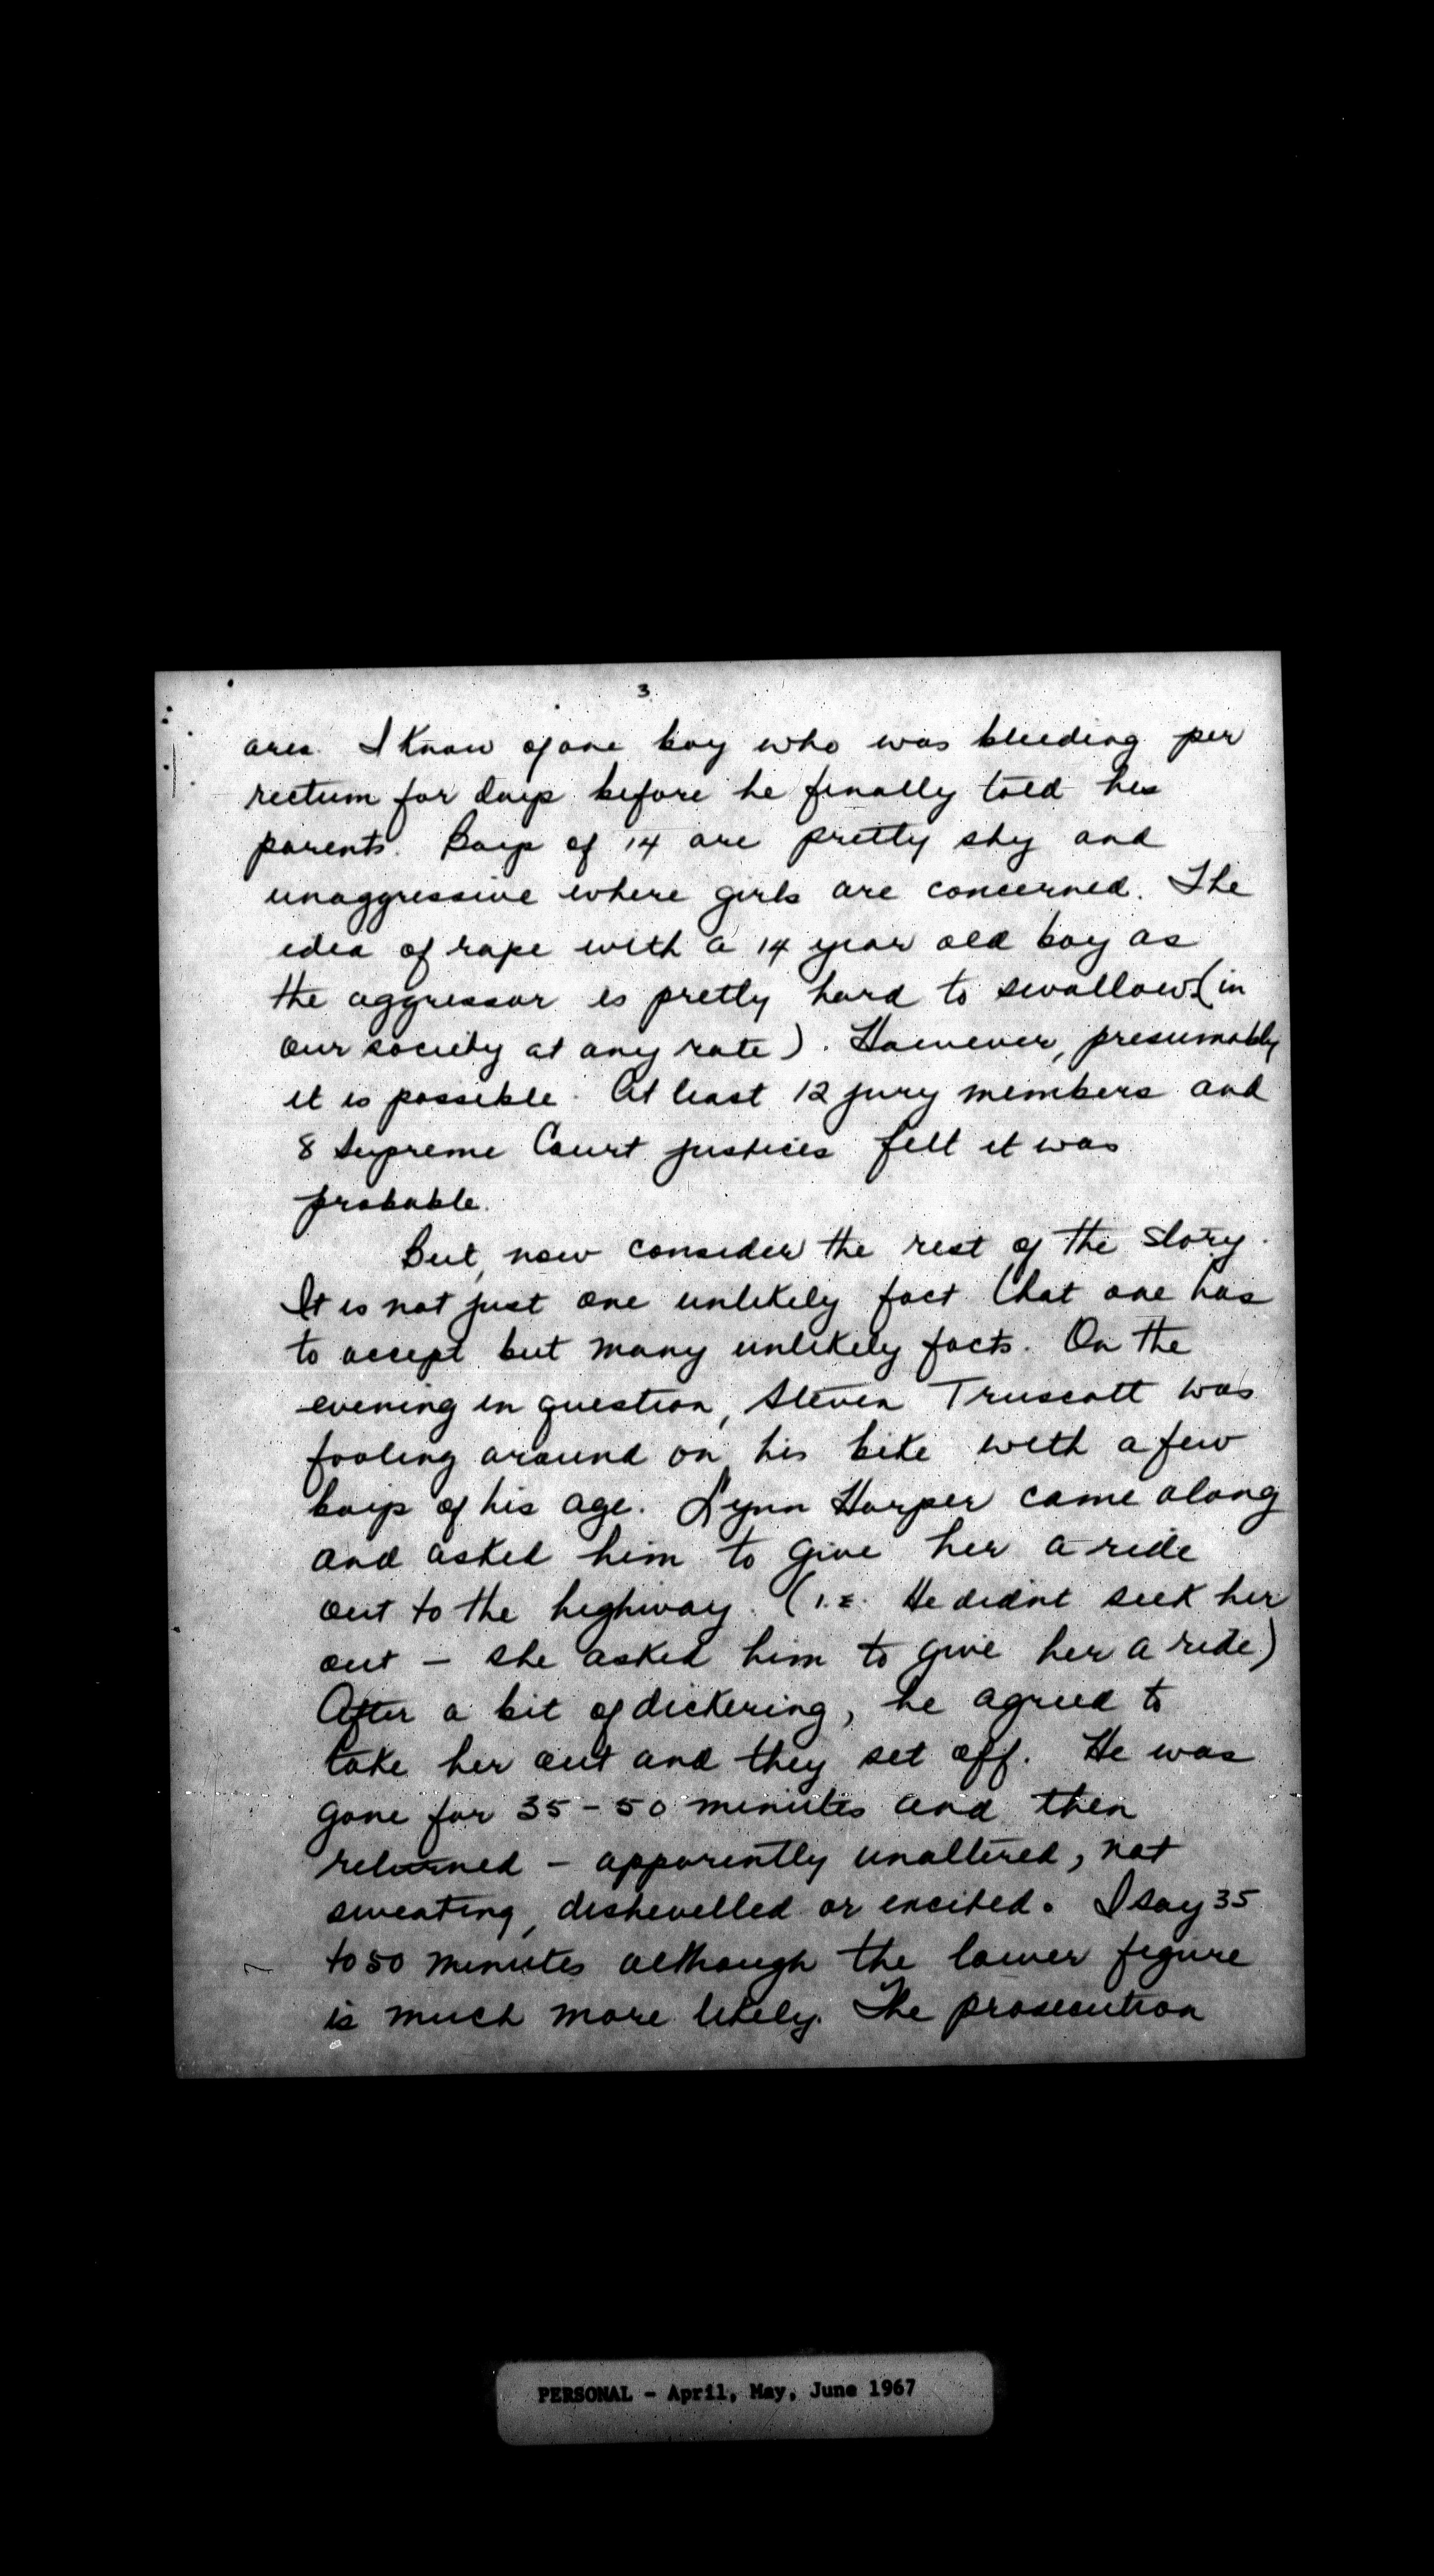 3
area. I know of one boy who was bleeding per
rectum for days before he finally told his
parents. Boys of 14 are pretty shy and
unaggressive where girls are concerned. The
idea of rape with a 14 year old boy as
the aggressor is pretty hard to swallow (in
our society at any rate). However, presumably
it is possible. At least 12 jury members and
8 Supreme Court justices felt it was
probable.
But, now consider the rest of the story.
It is not just one unlikely fact that one has
to accept but many unlikely facts. On the
evening in question, Steven Truscott was
fooling around on his bike with a few
boys of his age. Lynn Harper came along
and asked him to give her a ride
out to the highway. (i.e. He didnt seek her
out - she asked him to give her a ride)
After a bit of dickering, he agreed to
take her out and they set off. He was
gone for 35-50 minutes and then
returned - apparently unaltered, not
sweating, dishevelled or excited. I say 35
to 50 minutes although the lower figure
is much more likely. The prosecution
PERSONAL - April, May, June 1967